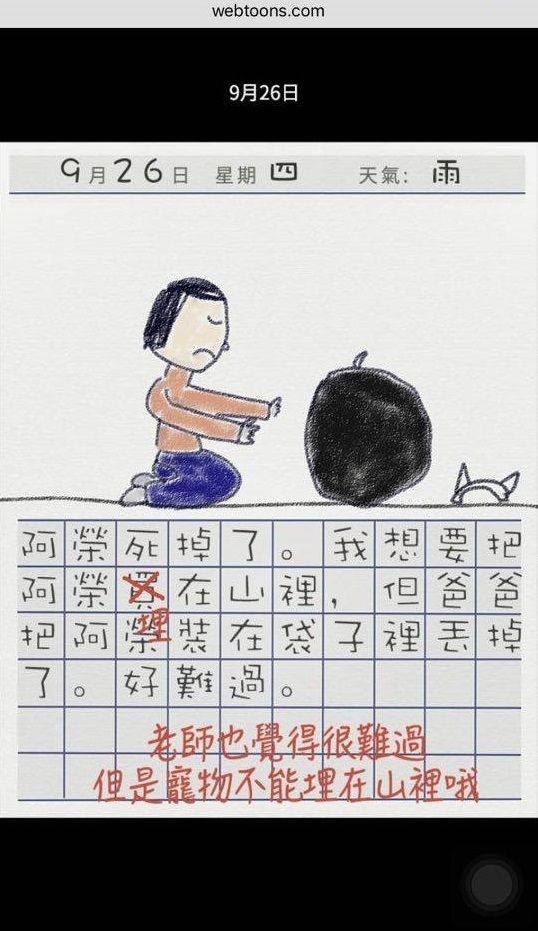 webtoons.com
9月26日
9月26日 星期 四 天氣: 雨
阿榮死掉了。我想要把
阿榮買在山裡，但爸爸
埋
把阿榮裝在袋子裡丟掉
了。好難過。
老師也覺得很難過
但是寵物不能埋在山裡哦